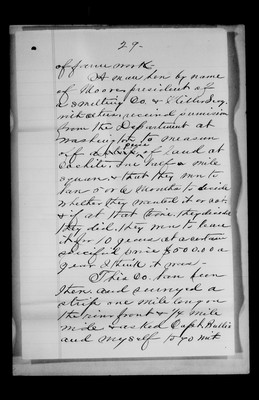 29-
of fence work.
A man here by name
of Moore president of
a Smelting Co. &
with others, secured permission
from the Department at
Washington to measure
of a piece of land at
one half a mile
square & that they were to
have 5 or 6 Months to decide
whether they wanted it or not.
& if at that time they decided
they did, they were to lease
it for 10 years at a certain
specified price $500.00 a
year I think it was-
This Co. has been
there and surveyed a
strip one mile long on
the river front & 1/4 mile
wide & asked Capt.
and myself to go out